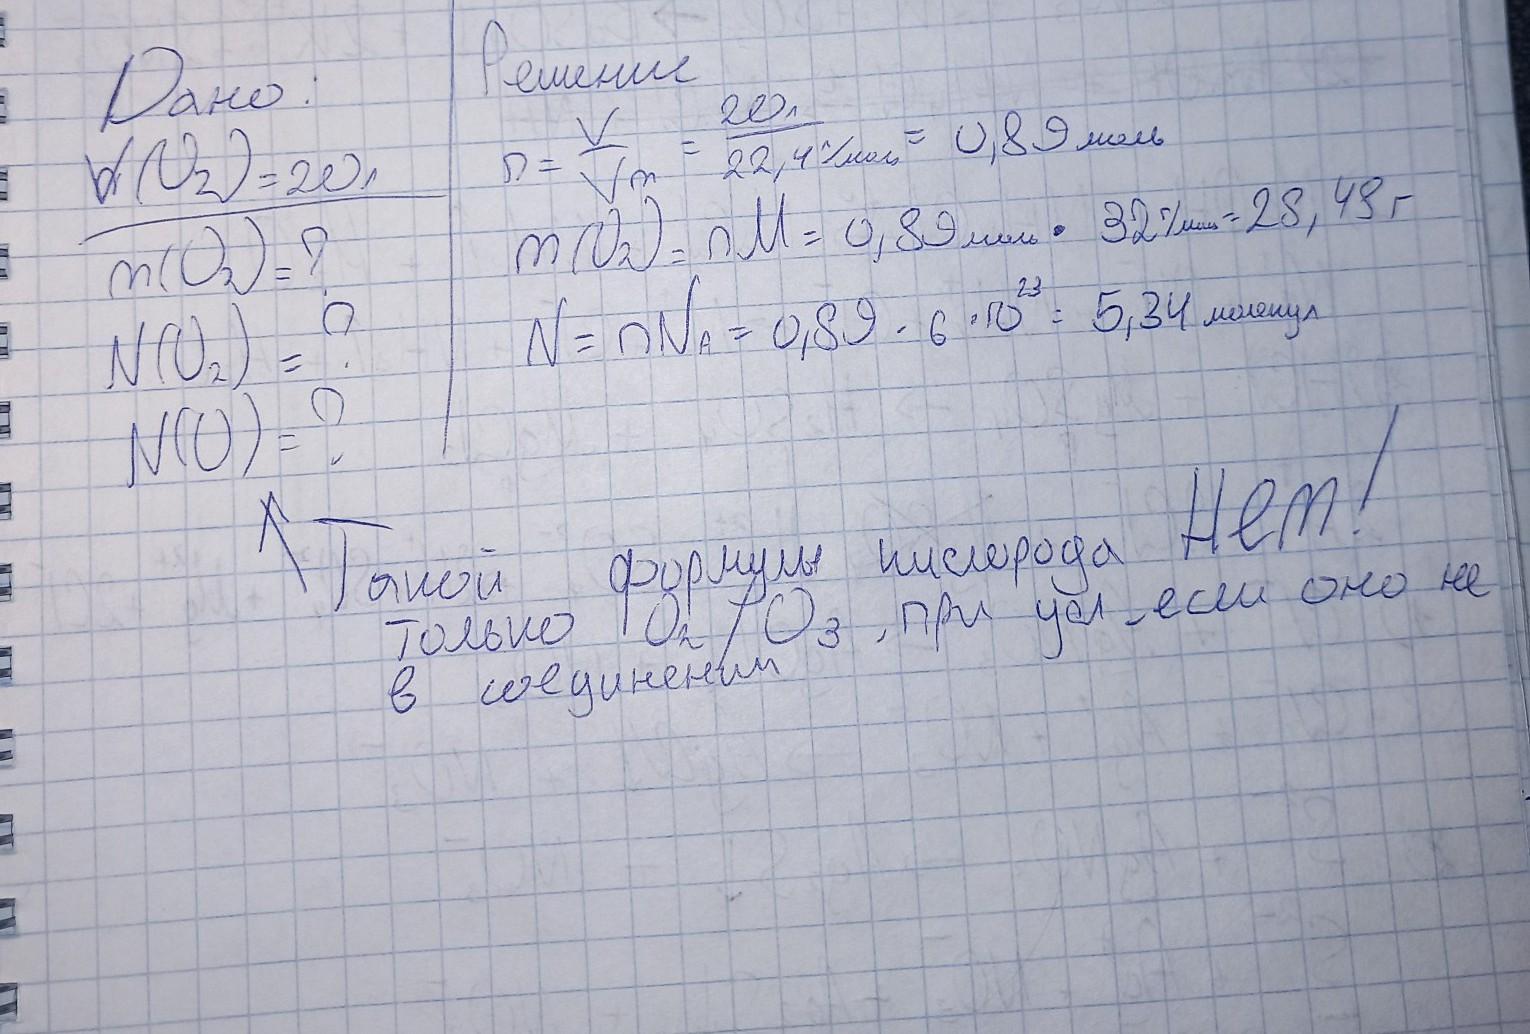 Дано:
V(O₂)=20л
m(O₂)=?
N(O₂)=?
N(O)=?
Решение
n = V/Vm = 20л/22,4 л/моль = 0,89 моль
m(O₂) = nM = 0,89 моль · 32 г/моль = 28,48 г
N = nNA = 0,89 · 6 · 10²³ = 5,34 молекул
Такой формулы кислорода Нет!
только O₂/O₃, при усл. если оно не
в соединении